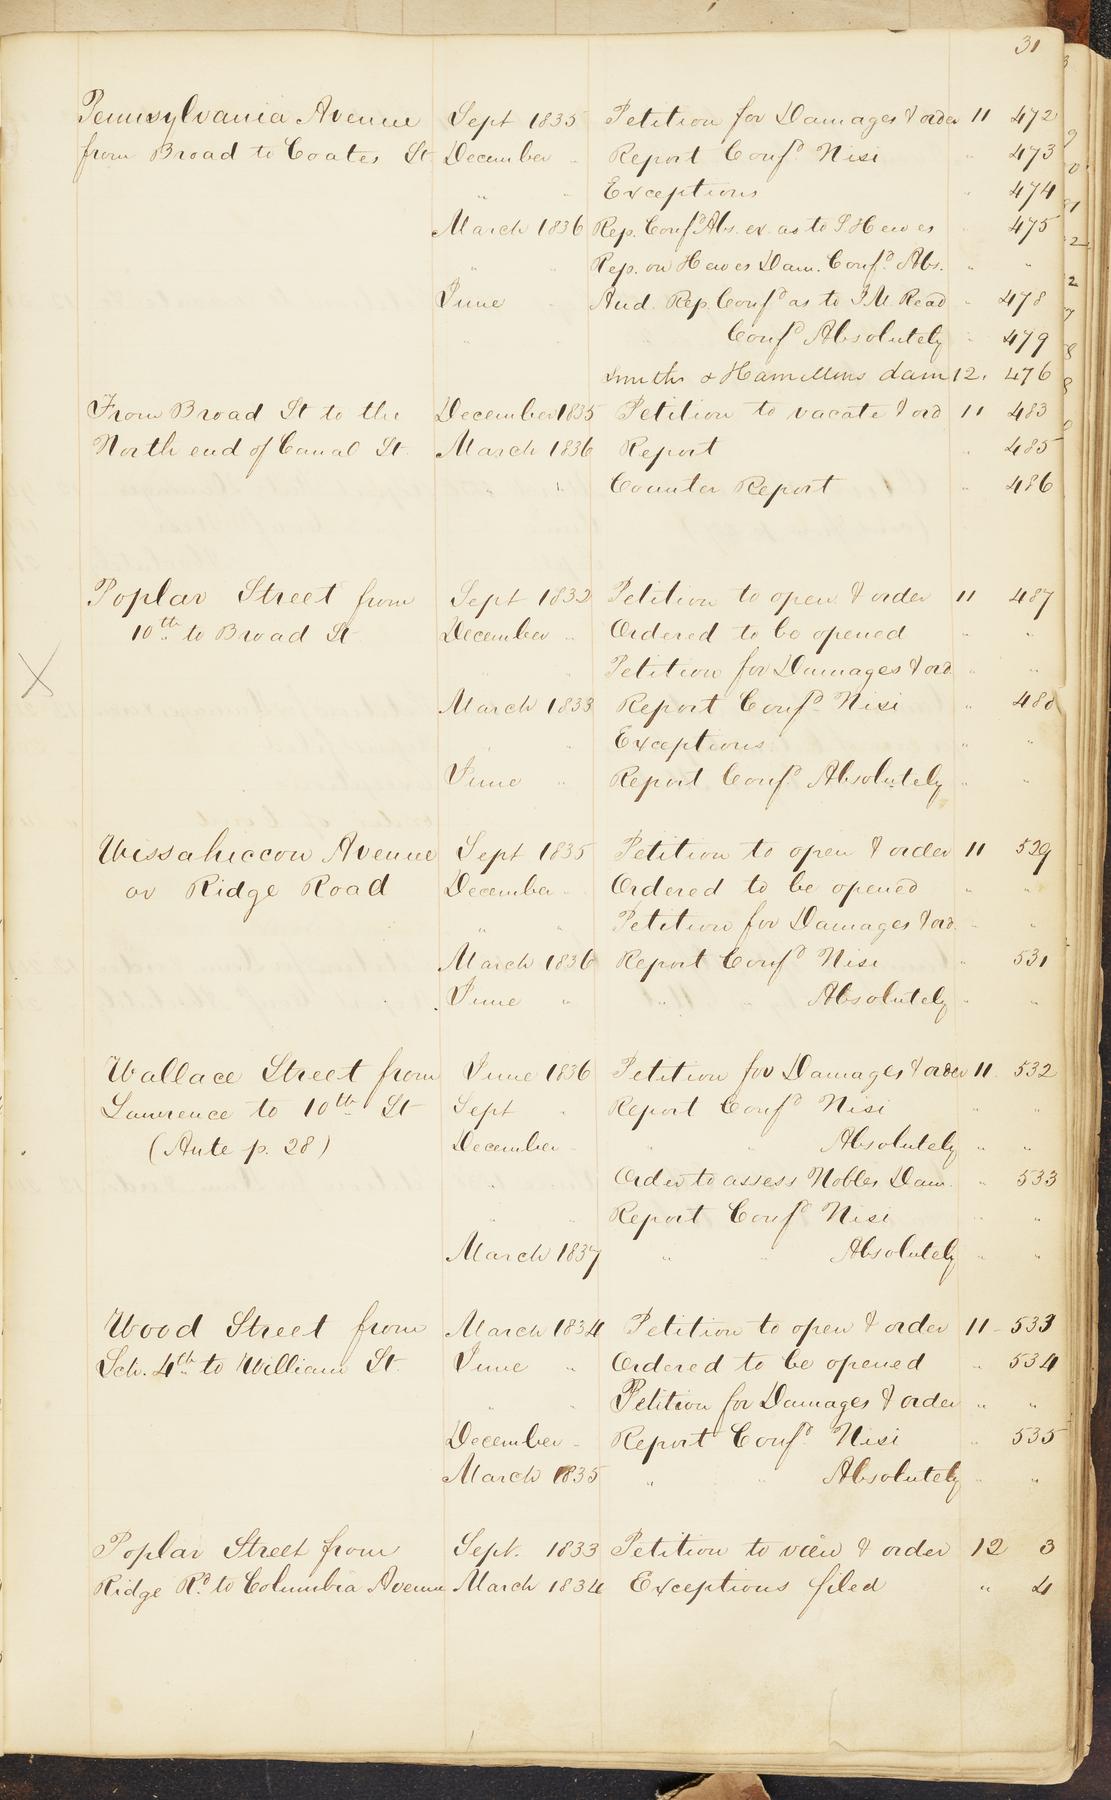 31
Pennsylvania Avenue Sept 1835 Petition for Damages & order 11 472
from Broad to Coates St December " Report Confd Nisi " 473
" " Exceptions " 474
March 1836 Rep. Confd Abs. ex. as to S Hewes " 475
" " Rep. on Hewes Dam. Confd Abs. " "
June " Aud. Rep. Confd as to J.M. Read " 478
" " Confd Absolutely " 479
Smiths & Hamiltons dam 12. 476
From Broad St to the December 1835 Petition to vacate & ord 11 483
North end of Canal St. March 1836 Report " 485
" " Counter Report " 486
Poplar Street from Sept 1832 Petition to open & order 11 487
10th to Broad St December " Ordered to be opened " "
" " Petition for Damages & ord. " "
X
March 1833 Report Confd Nisi " 488
" " Exceptions " "
June " Report Confd Absolutely " "
Wissahiccon Avenue Sept 1835 Petition to open & order 11 529
or Ridge Road December " Ordered to be opened " "
" " Petition for Damages & ord. " "
March 1836 Report Confd Nisi " 531
June " " " Absolutely " "
Wallace Street from June 1836 Petition for Damages & order 11 532
Lawrence to 10th St Sept " Report Confd Nisi " "
(Ante p. 28) December " " " Absolutely " "
" " Order to assess Nobles Dam. " 533
" " Report Confd Nisi " "
March 1837 " " Absolutely " "
Wood Street from March 1834 Petition to open & order 11 533
Sch. 4th to William St. June " Ordered to be opened " 534
" " Petition for Damages & order " "
December " Report Confd Nisi " 535
March 1835 " " Absolutely " "
Poplar Street from Sept. 1833 Petition to view & order 12 3
Ridge Rd to Columbia Avenue March 1834 Exceptions filed " 4